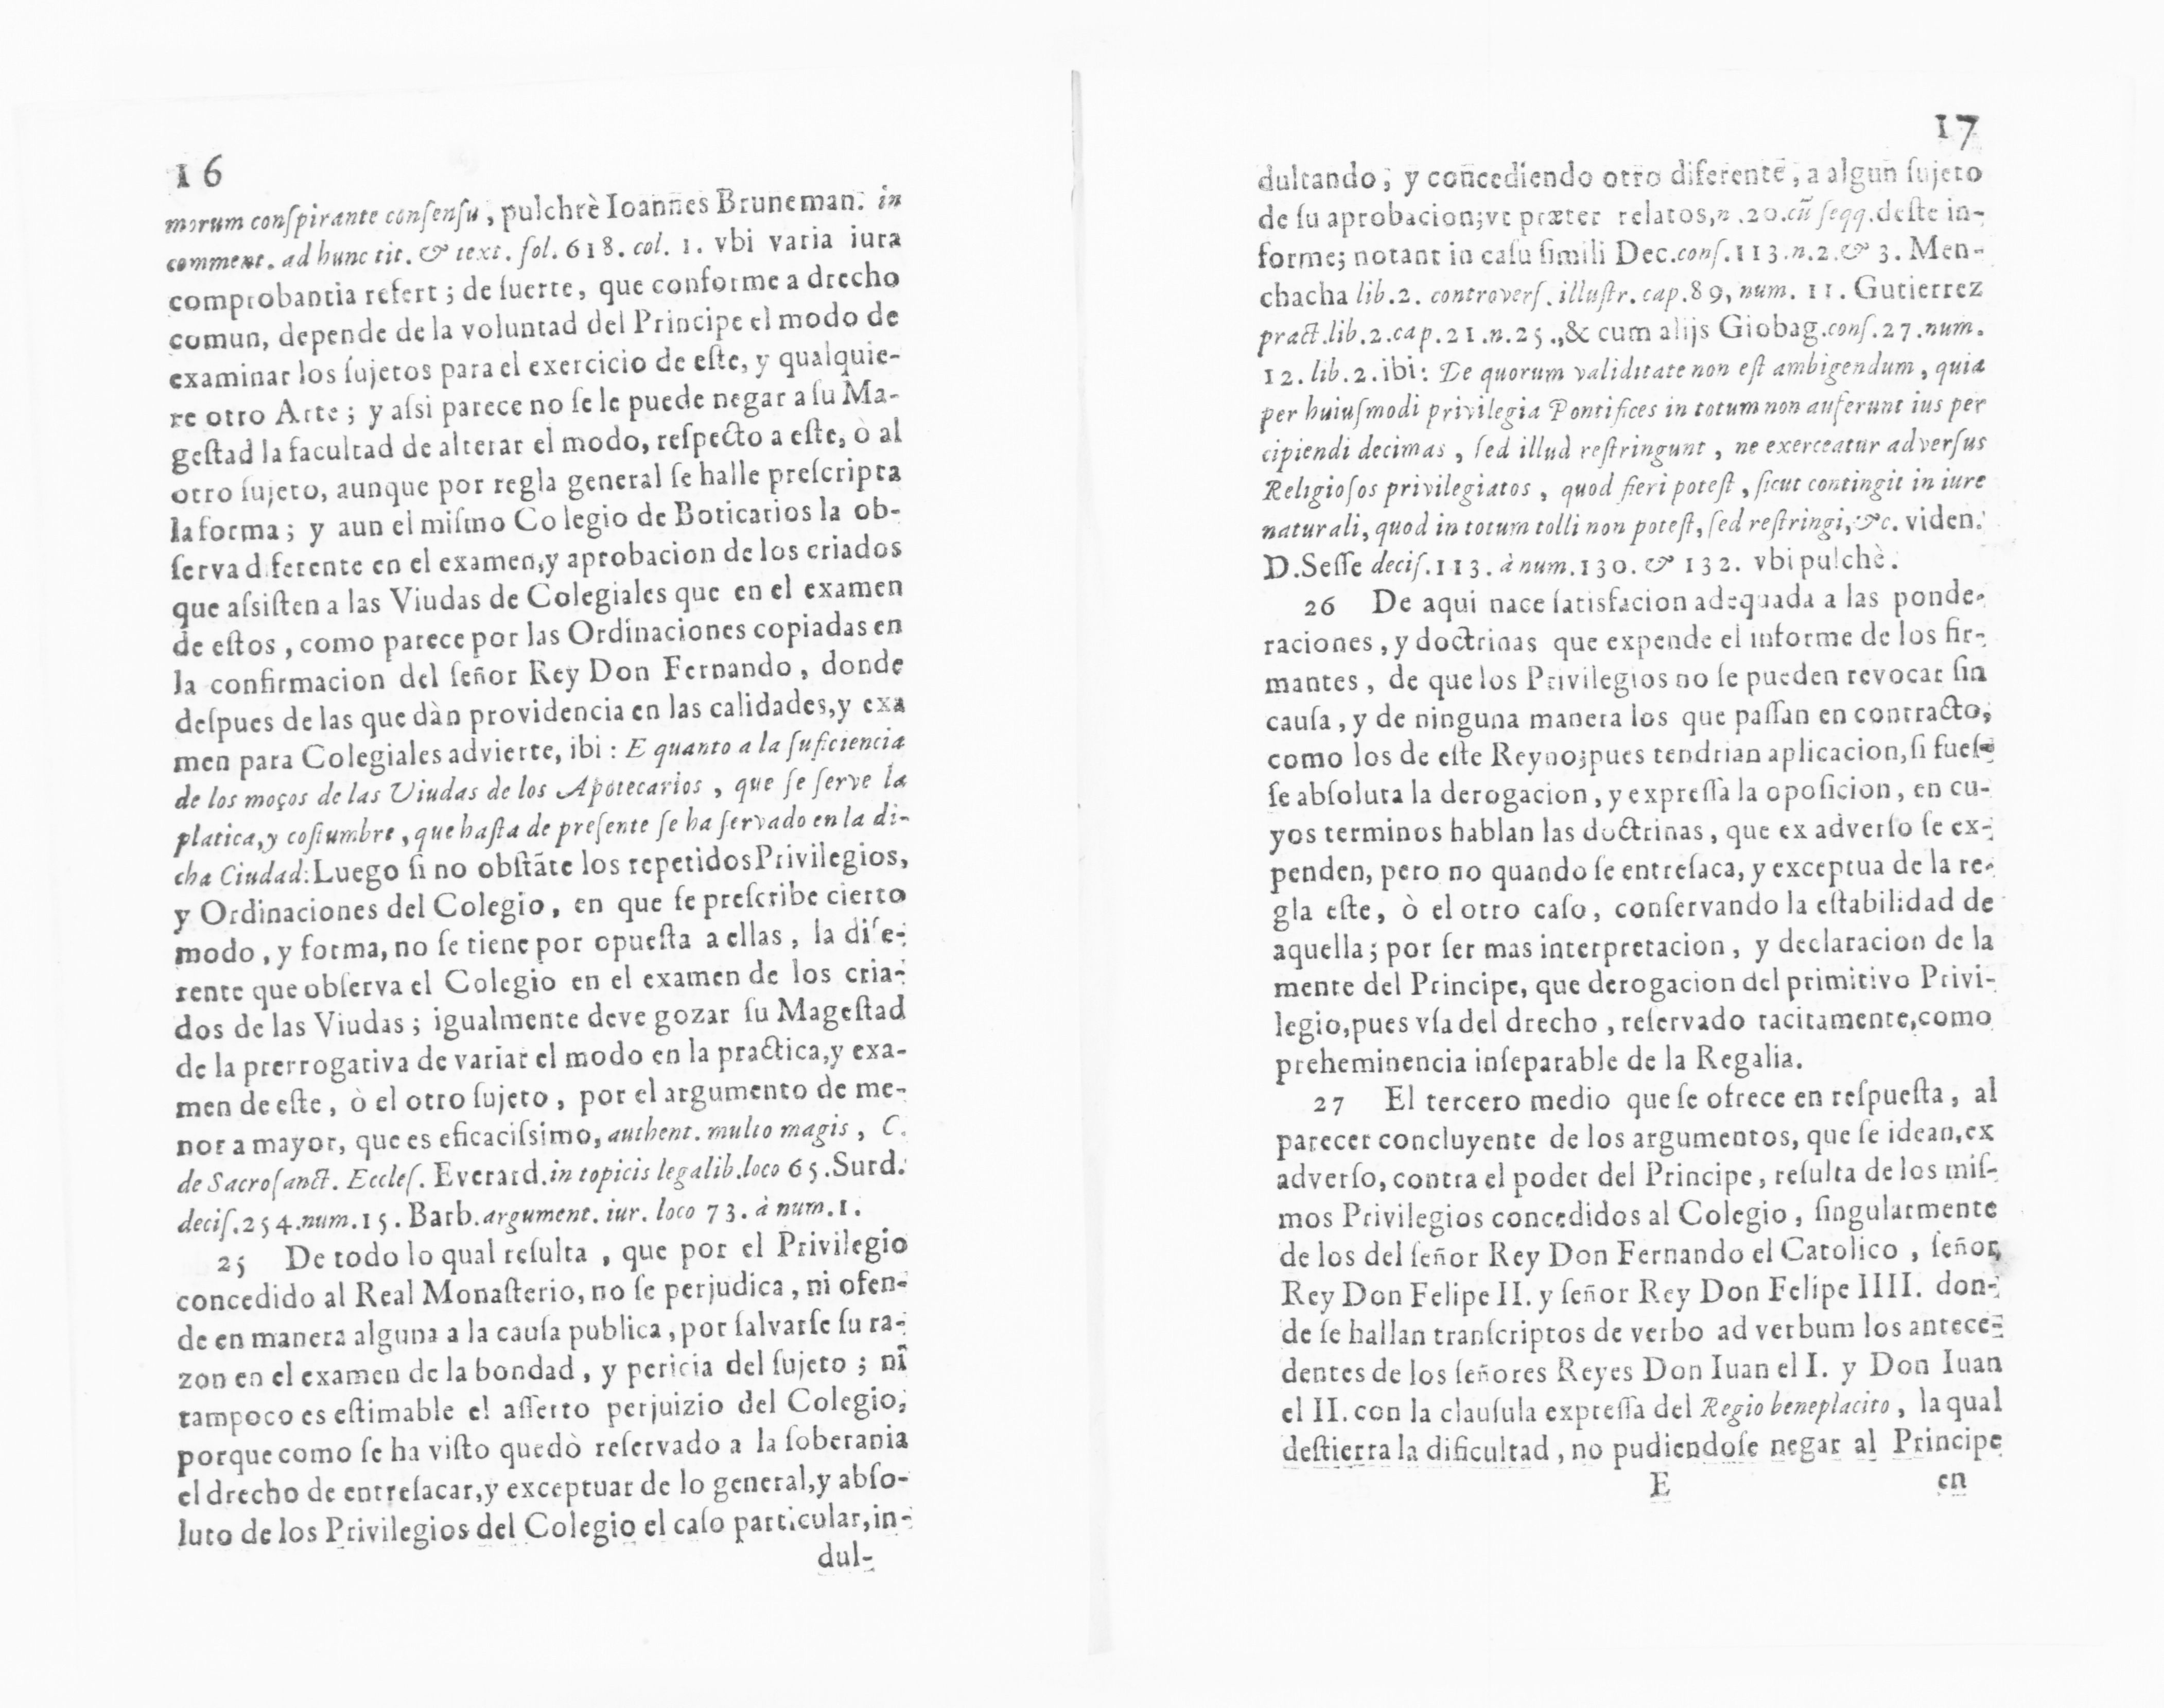 16
morum conſpirante conſenſu, pulchrè Ioannes Bruneman. in
comment. ad hunc tit. & text. fol. 618. col. 1. vbi varia iura
comprobantia refert; de ſuerte, que conforme a drecho
comun, depende de la voluntad del Principe el modo de
examinar los ſujetos para el exercicio de eſte, y qualquie-
re otro Arte; y aſsi parece no ſe le puede negar a ſu Ma-
geſtad la facultad de alterar el modo, reſpecto a eſte, ò al
otro ſujeto, aunque por regla general ſe halle preſcripta
la forma; y aun el miſmo Colegio de Boticarios la ob-
ſerva diferente en el examen,y aprobacion de los criados
que aſsiſten a las Viudas de Colegiales que en el examen
de eſtos, como parece por las Ordinaciones copiadas en
la confirmacion del ſeñor Rey Don Fernando, donde
deſpues de las que dàn providencia en las calidades,y exa
men para Colegiales advierte, ibi: E quanto a la ſuficiencia
de los moços de las Viudas de los Apotecarios, que ſe ſerve la
platica,y coſtumbre, que haſta de preſente ſe ha ſervado en la di-
cha Ciudad: Luego ſi no obſtāte los repetidos Privilegios,
y Ordinaciones del Colegio, en que ſe preſcribe cierto
modo, y forma, no ſe tiene por opueſta a ellas, la dife-
rente que obſerva el Colegio en el examen de los cria-
dos de las Viudas; igualmente deve gozar ſu Mageſtad
de la prerrogativa de variar el modo en la practica,y exa-
men de eſte, ò el otro ſujeto, por el argumento de me-
nor a mayor, que es eficaciſsimo, authent. multo magis, C.
de Sacroſanct. Eccleſ. Everard. in topicis legalib. loco 65. Surd.
deciſ. 254. num. 15. Barb. argument. iur. loco 73. à num. 1.
25 De todo lo qual reſulta, que por el Privilegio
concedido al Real Monaſterio, no ſe perjudica, ni ofen-
de en manera alguna a la cauſa publica, por ſalvarſe ſu ra-
zon en el examen de la bondad, y pericia del ſujeto; ni
tampoco es eſtimable el aſſerto perjuizio del Colegio,
porque como ſe ha viſto quedò reſervado a la ſoberania
el drecho de entreſacar,y exceptuar de lo general,y abſo-
luto de los Privilegios del Colegio el caſo particular, in-
dul-
17
dultando, y concediendo otro diferente, a algun ſujeto
de ſu aprobacion; vt præter relatos, n. 20. cū ſeqq. deſte in-
forme; notant in caſu ſimili Dec. conſ. 113. n. 2. & 3. Men-
chacha lib. 2. controverſ. illuſtr. cap. 89, num. 11. Gutierrez
pract. lib. 2. cap. 21. n. 25., & cum alijs Giobag. conſ. 27. num.
12. lib. 2. ibi: De quorum validitate non eſt ambigendum, quia
per huiuſmodi privilegia Pontifices in totum non auferunt ius per
cipiendi decimas, ſed illud reſtringunt, ne exerceatur adverſus
Religioſos privilegiatos, quod fieri poteſt, ſicut contingit in iure
naturali, quod in totum tolli non poteſt, ſed reſtringi, &c. viden.
D. Seſſe deciſ. 113. à num. 130. & 132. vbi pulchè.
26 De aqui nace ſatisfacion adequada a las ponde-
raciones, y doctrinas que expende el informe de los fir-
mantes, de que los Privilegios no ſe pueden revocar ſin
cauſa, y de ninguna manera los que paſſan en contracto,
como los de eſte Reyno; pues tendrian aplicacion, ſi fueſ-
ſe abſoluta la derogacion, y expreſſa la opoſicion, en cu-
yos terminos hablan las doctrinas, que ex adverſo ſe ex-
penden, pero no quando ſe entreſaca, y exceptua de la re-
gla eſte, ò el otro caſo, conſervando la eſtabilidad de
aquella; por ſer mas interpretacion, y declaracion de la
mente del Principe, que derogacion del primitivo Privi-
legio, pues vſa del drecho, reſervado tacitamente, como
preheminencia inſeparable de la Regalia.
27 El tercero medio que ſe ofrece en reſpueſta, al
parecer concluyente de los argumentos, que ſe idean, ex
adverſo, contra el poder del Principe, reſulta de los miſ-
mos Privilegios concedidos al Colegio, ſingularmente
de los del ſeñor Rey Don Fernando el Catolico, ſeñor
Rey Don Felipe II. y ſeñor Rey Don Felipe IIII. don-
de ſe hallan tranſcriptos de verbo ad verbum los antece-
dentes de los ſeñores Reyes Don Iuan el I. y Don Iuan
el II. con la clauſula expreſſa del Regio beneplacito, la qual
deſtierra la dificultad, no pudiendoſe negar al Principe
E en